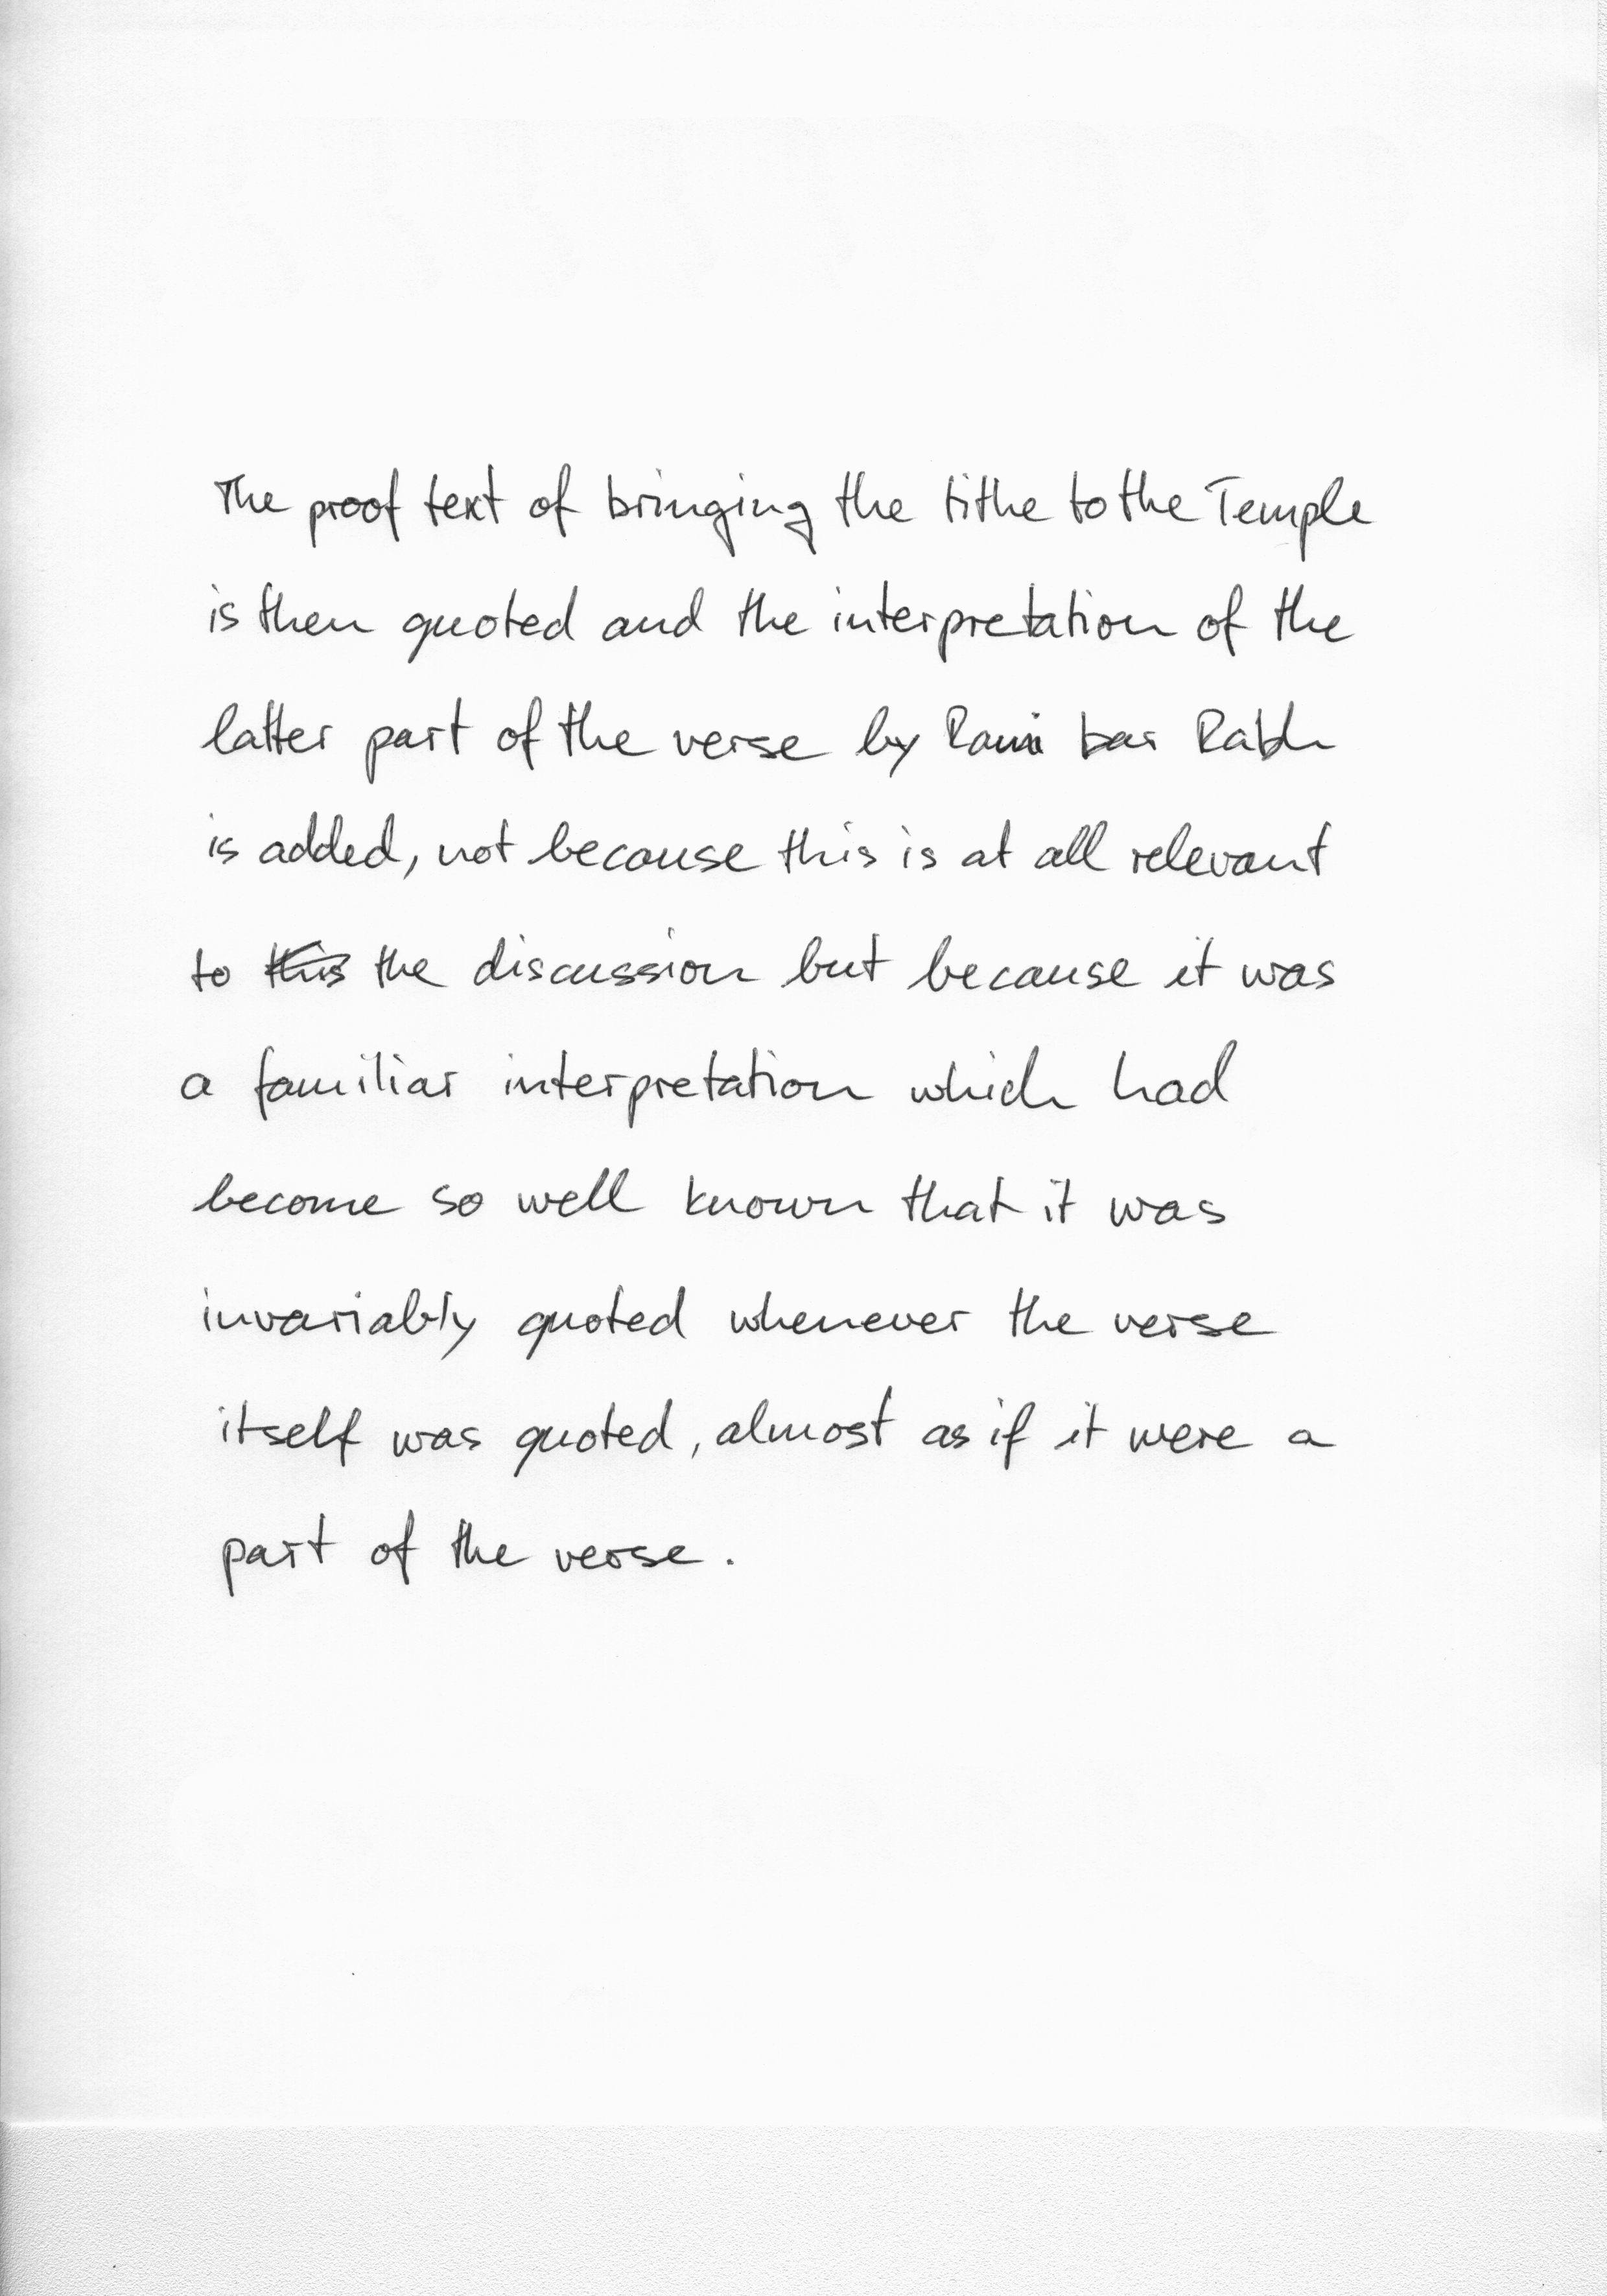 The proof text of bringing the tithe to the Temple
is then quoted and the interpretation of the
latter part of the verse by Rami bar Rabh
is added, not because this is at all relevant
to ~~this~~ the discussion but because it was
a familiar interpretation which had
become so well known that it was
invariably quoted whenever the verse
itself was quoted, almost as if it were a
part of the verse.